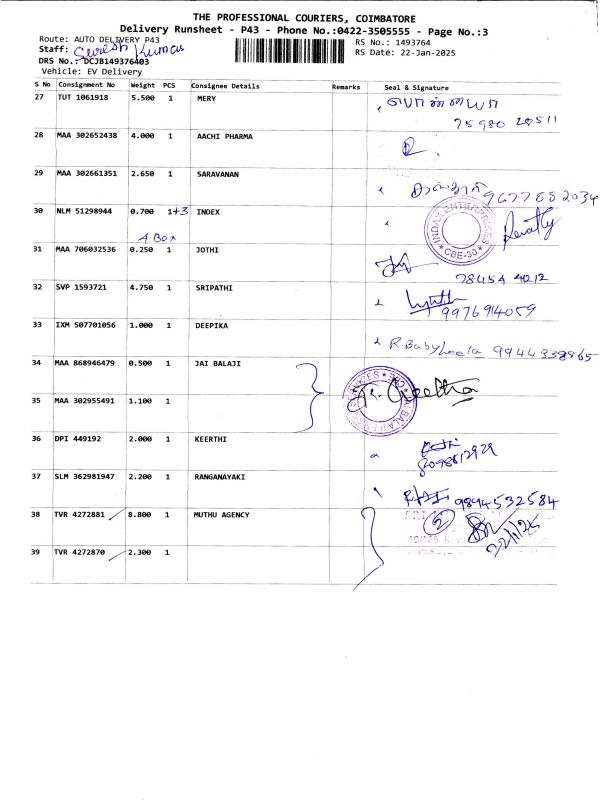 THE PROFESSIONAL COURIERS, COIMBATORE
Delivery Runsheet - P43 - Phone No.:0422-3505555 - Page No.:3
Route: AUTO DELIVERY P43
RS No.: 1493764
Staff: Suresh Kumar
RS Date: 22-Jan-2025
DRS No.: DCJB149376403
Vehicle: EV Delivery
S No Consignment No Weight PCS Consignee Details Remarks Seal & Signature
27 TUT 1061918 5.500 1 MERY
75980 20511
28 MAA 302652438 4.000 1 AACHI PHARMA
29 MAA 302661351 2.650 1 SARAVANAN 9677882034
30 NLM 51298944 0.700 1+3 INDEX
4 Box
INDEX ENTERPRISES
CBE-30
31 MAA 706032536 0.250 1 JOTHI
78454 4212
32 SVP 1593721 4.750 1 SRIPATHI
9976914059
33 IXM 507701056 1.000 1 DEEPIKA
R. Babysheela 9944338865
34 MAA 868946479 0.500 1 JAI BALAJI
35 MAA 302955491 1.100 1
Geetha
36 DPI 449192 2.000 1 KEERTHI
37 SLM 362981947 2.200 1 RANGANAYAKI 9894532584
38 TVR 4272881 8.800 1 MUTHU AGENCY
SRI
2
22/1/25
39 TVR 4272870 2.300 1